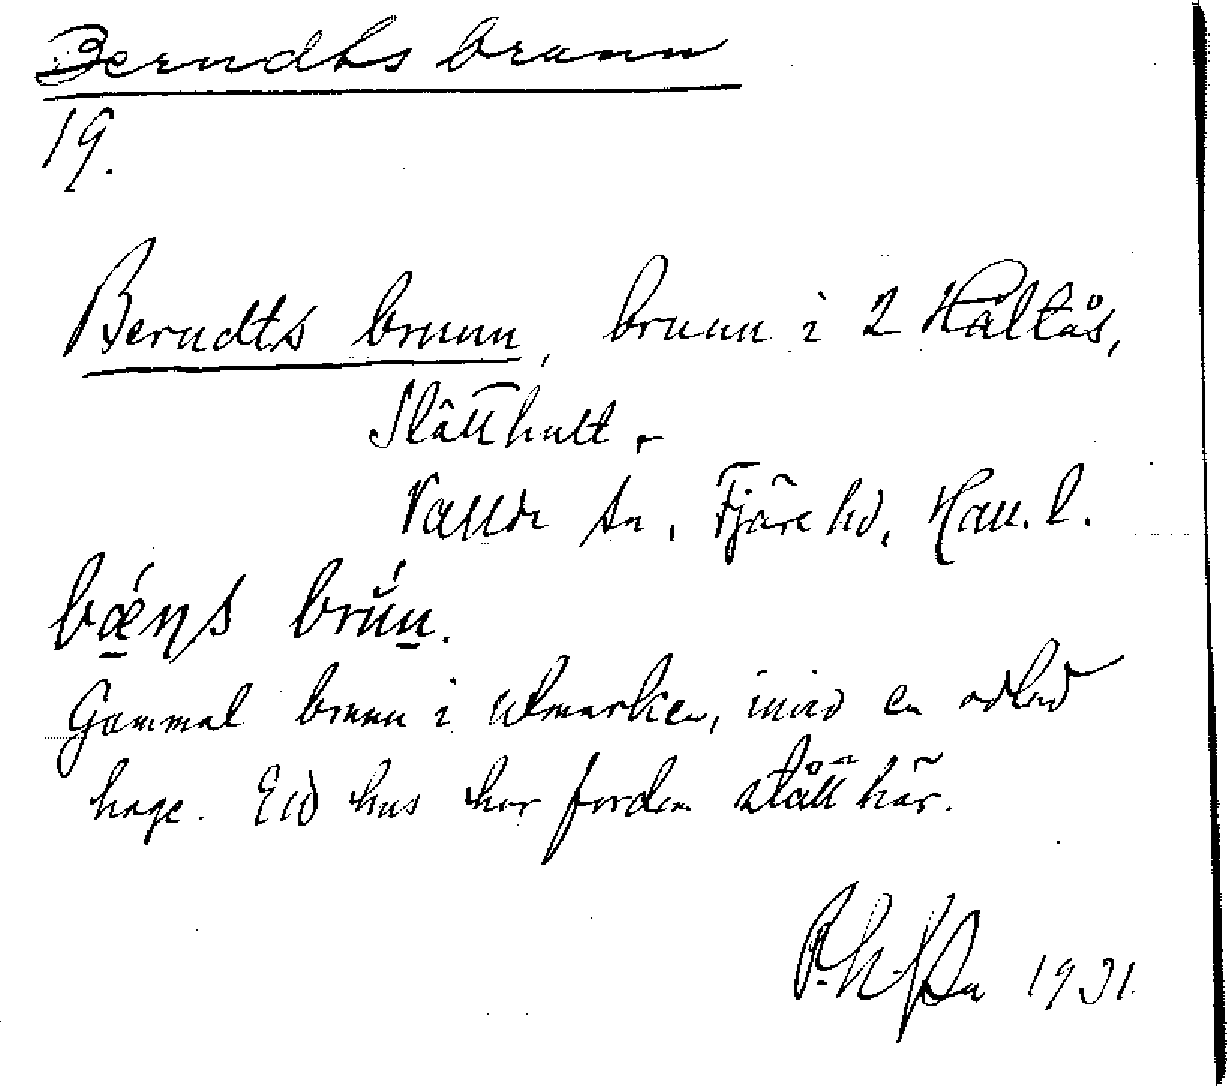 Berndts brunn
19.
Berndts brunn, brunn i 2 Håltås,
Slätthult.
Vallda sn, Fjäre hd, Hall. l.
bǽ̱ns brŭ́n̲.
Gammal brunn i utmarken, invid en odlad
hage. Ett hus har fordom stått här.
1931